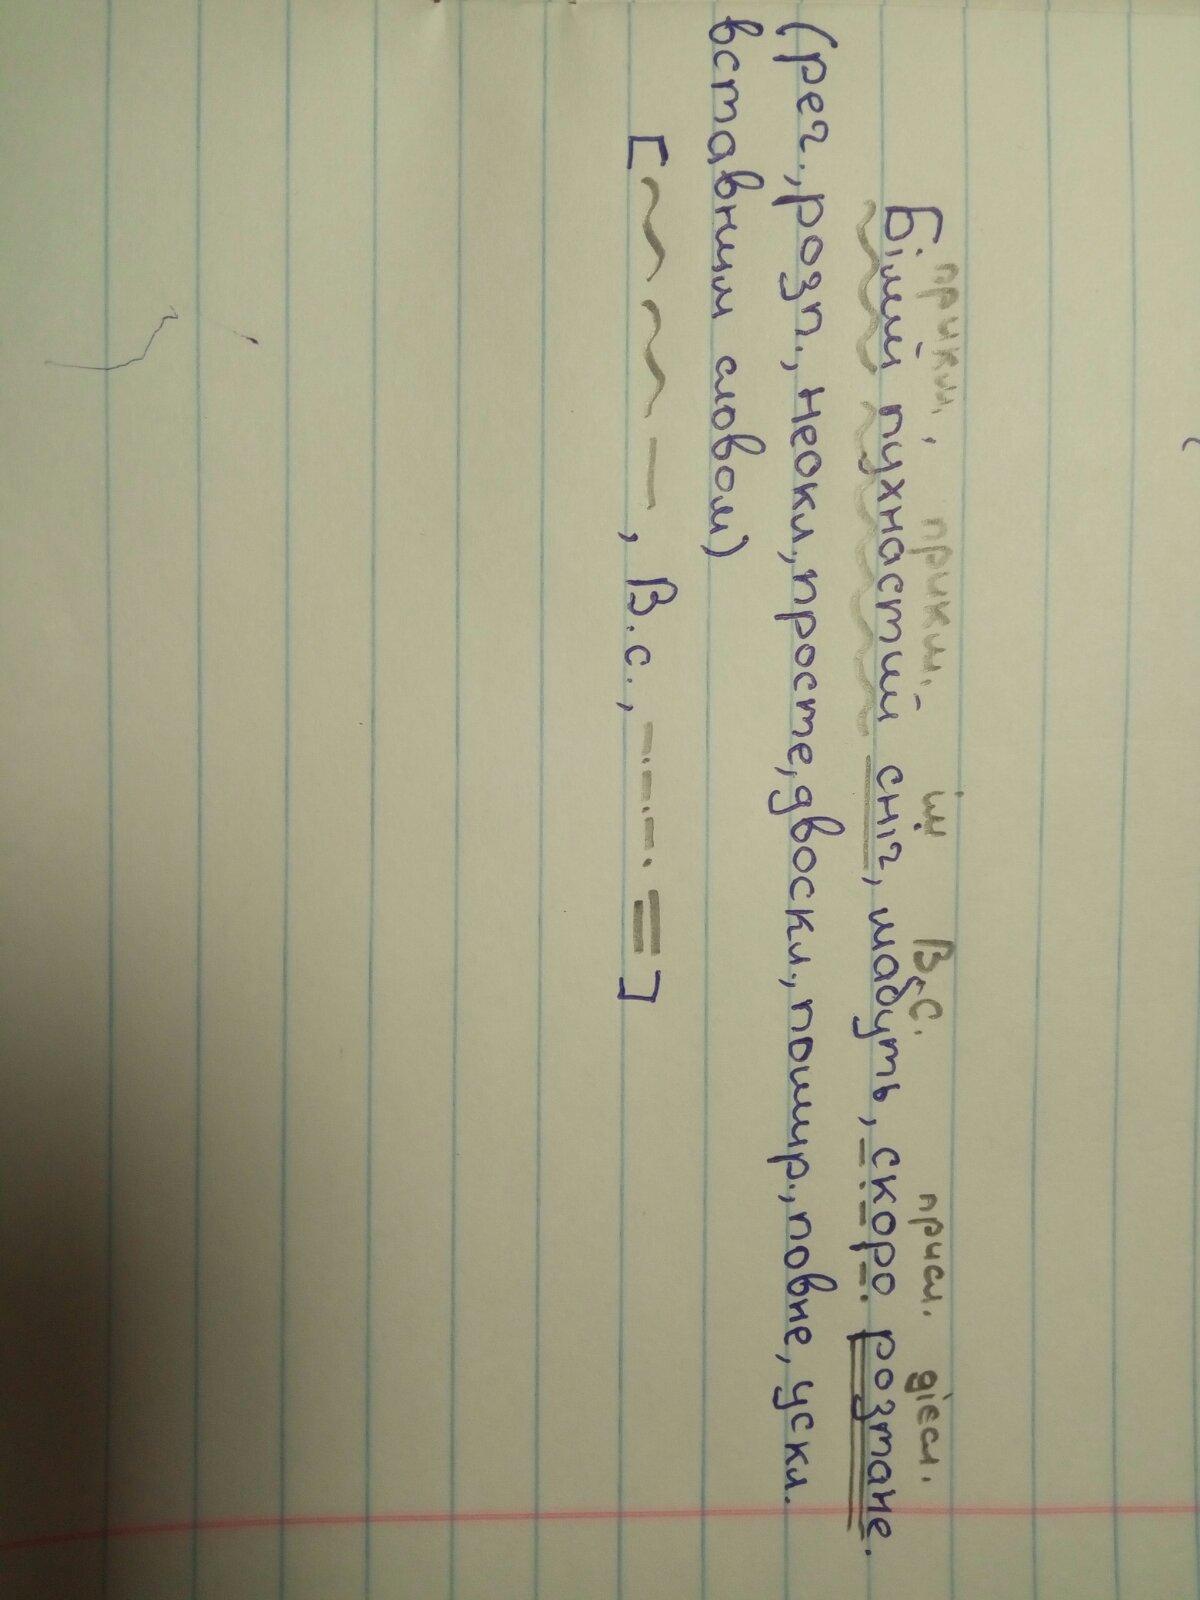 прикм, прикм. ім В.С. присл. дієсл.
Білий пухнастий сніг, мабуть, скоро розтане.
(реч., розп., неокл., просте, двоскл., пошир., повне, ускл.
вставним словом)
[ , В.с., ]